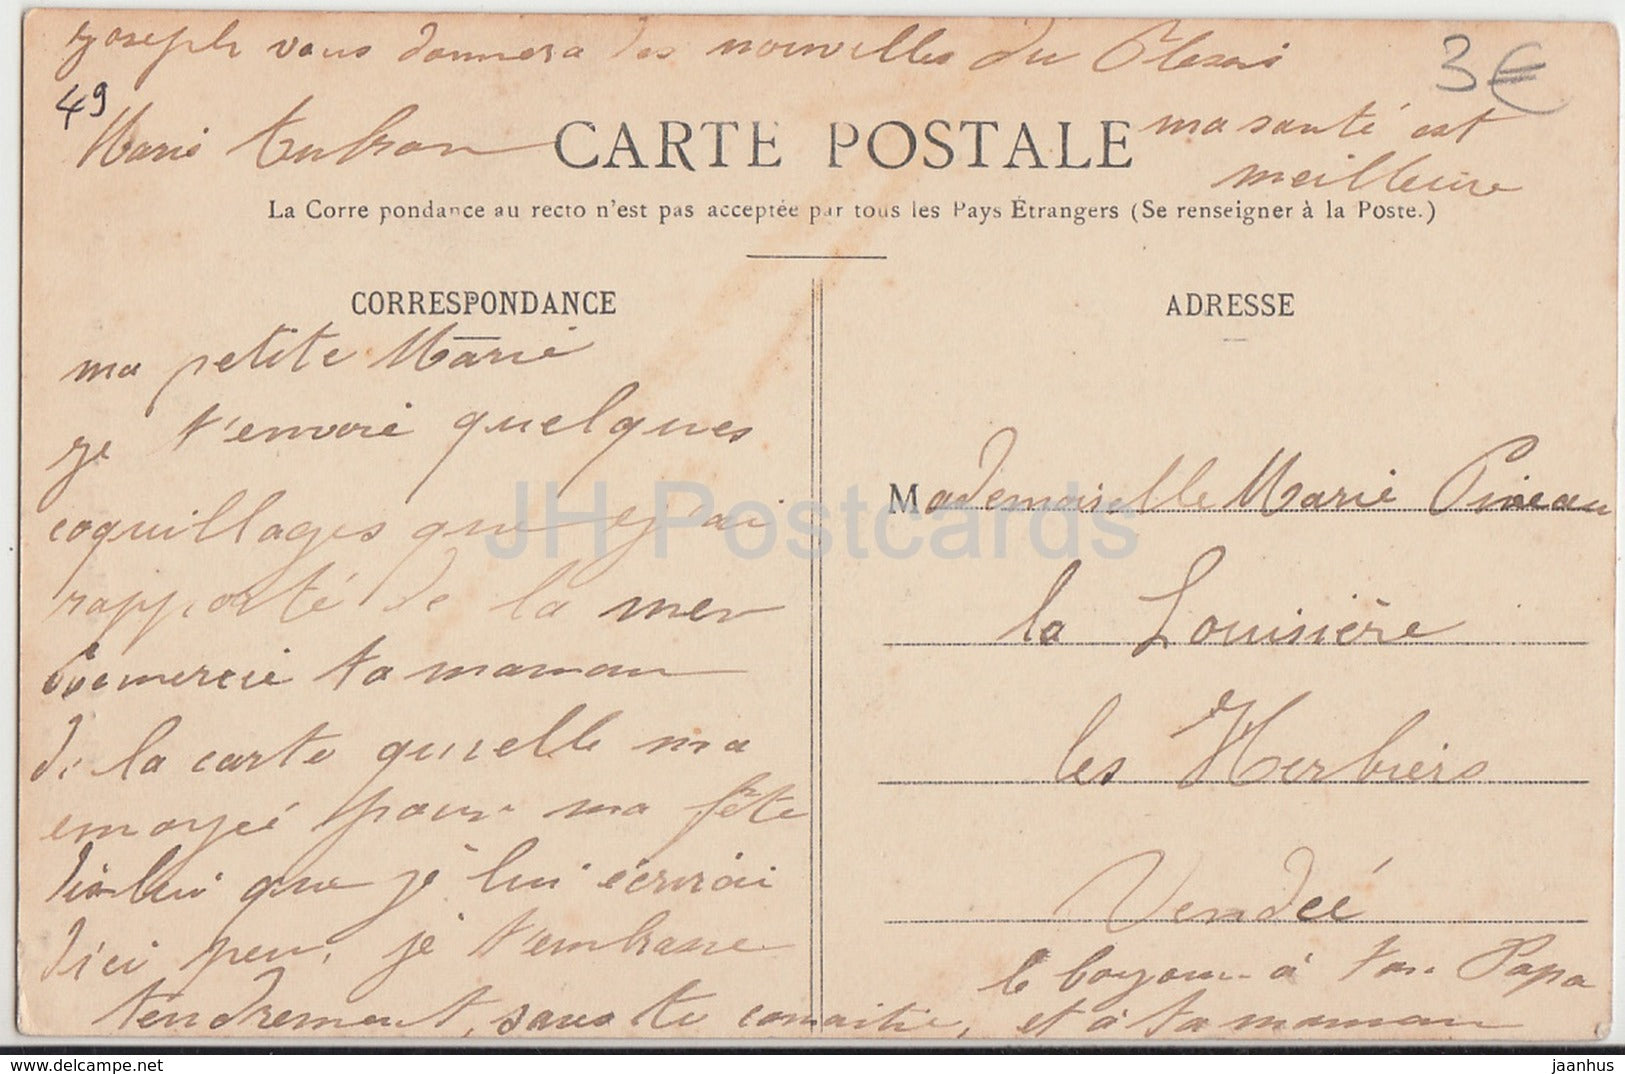 Joseph vous donnera des nouvelles du Plessis
3€
49
Marie
CARTE POSTALE
ma santé est
meilleure
La Correspondance au recto n'est pas acceptée par tous les Pays Étrangers (Se renseigner à la Poste.)
CORRESPONDANCE
ADRESSE
ma petite Marie
je t'envoie quelques
coquillages que j'ai
rapporté de la mer
remercie ta maman
de la carte qu'elle ma
envoyée pour ma fête
dis lui que je lui écrirai
d'ici peu, je t'embrasse
tendrement, sans te connaitre,
Mademoiselle Marie Pineau
la Louisière
les Herbiers
Vendée
à ton Papa
et à ta maman
JH Postcards
https://www.jhpostcards.com
jaanhus